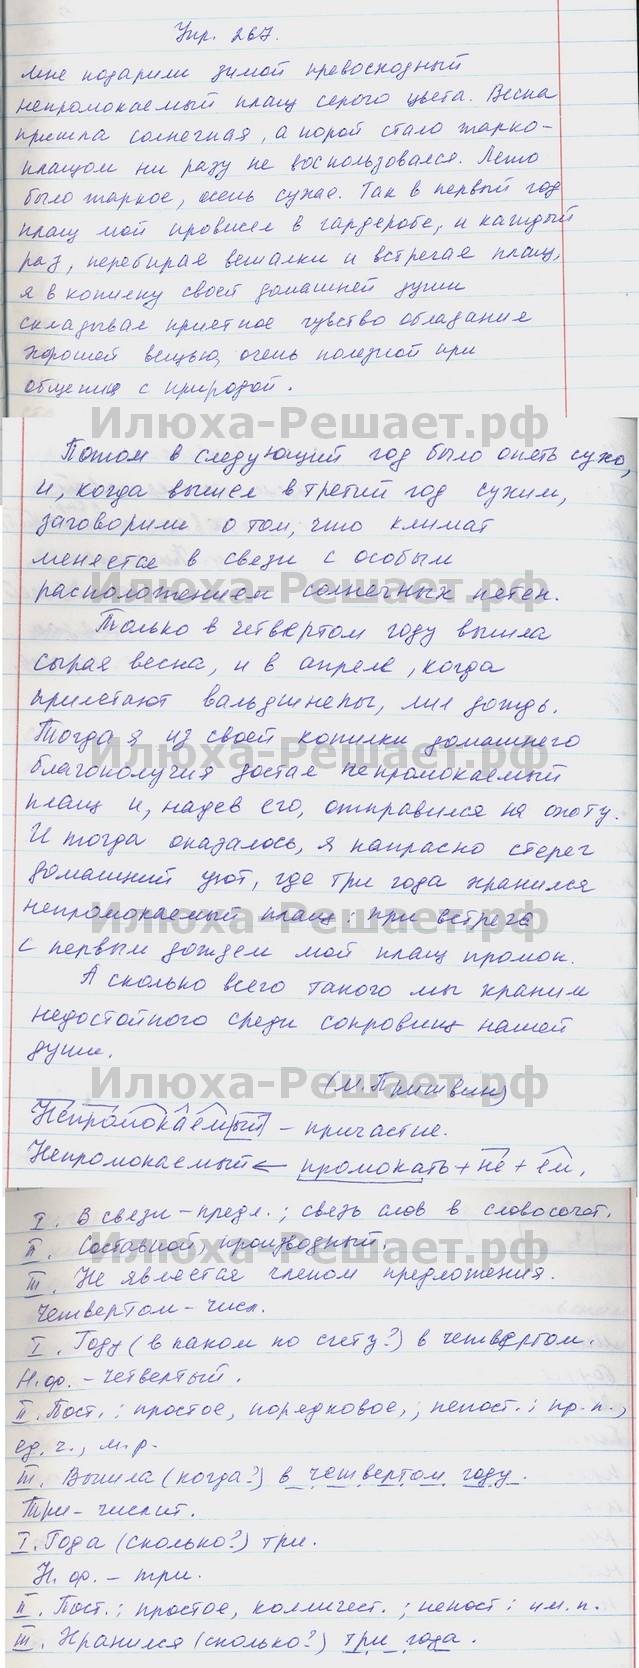 Упр. 267.
Мне подарили зимой превосходный
непромокаемый плащ серого цвета. Весна
пришла солнечная, а порой стало жарко –
плащом ни разу не воспользовался. Лето
было жаркое, очень сухое. Так в первый год
плащ мой провисел в гардеробе, и каждый
раз, перебирая вешалки и встречая плащ,
я в копилку своей домашней души
складывал приятное чувство обладания
хорошей вещью, очень полезной при
общении с природой.
Илюха-Решает.рф
Потом в следующий год было опять сухо,
и, когда вышел в третий год сухим,
заговорили о том, что климат
меняется в связи с особым
расположением солнечных пятен.
Илюха-Решает.рф
Только в четвертом году вышла
сырая весна, и в апреле, когда
прилетают вальдшнепы, лил дождь.
Тогда я из своей копилки домашнего
Илюха-Решает.рф
благополучия достал непромокаемый
плащ и, надев его, отправился на охоту.
И тогда оказалось, я напрасно стерег
домашний уют, где три года хранился
непромокаемый плащ: при встрече
Илюха-Решает.рф
с первым дождем мой плащ промок.
А сколько всего такого мы храним
недостойного среди сокровищ нашей
души.
(М. Пришвин)
Илюха-Решает.рф
Непромокаемый – причастие.
Непромокаемый ← промокать + не + ем.
I. В связи – предл.; связь слов в словосочет.
II. Составной, производный.
Илюха-Решает.рф
III. Не является членом предложения.
Четвертом – числ.
I. Году (в каком по счету?) в четвертом.
Н.ф. – четвертый.
II. Пост.: простое, порядковое,; непост.: пр.п.,
ед.ч., м.р.
III. Вышла (когда?) в четвертом году.
Три – числит.
I. Года (сколько?) три.
Н.ф. – три.
II. Пост.: простое, колличест.; непост: им.п.
III. Хранился (сколько?) три года.